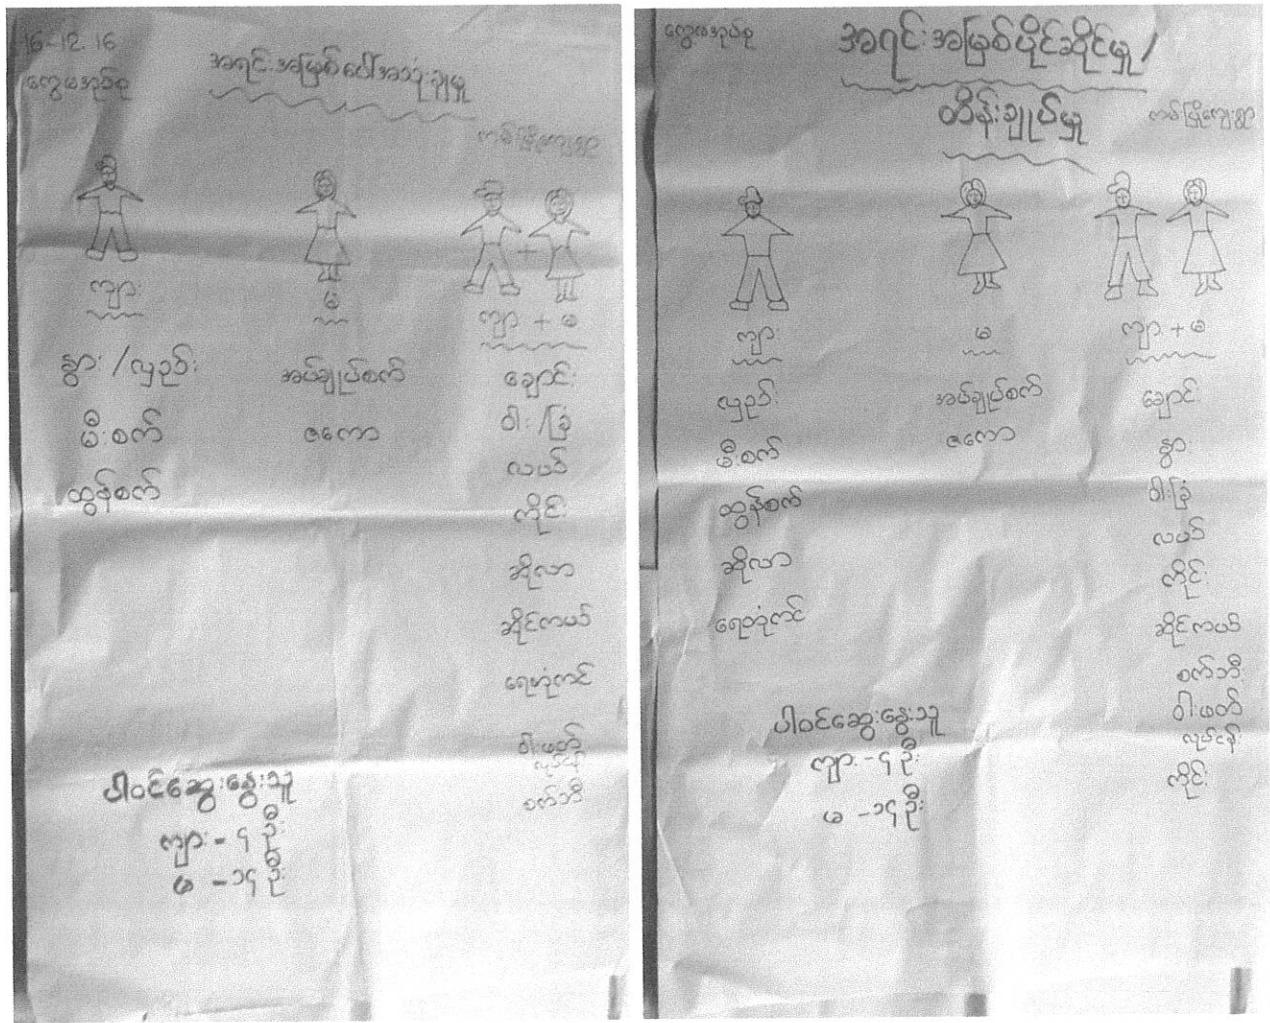 16-12-16
ကွေ့မအုပ်စု
အရင်းအမြစ်ပေါ်အသုံးချမှု
ကမ်းမြို့ကျေးရွာ
ကျား
မ
ကျား + မ
နွား / လှည်း
မီးစက်
ထွန်စက်
အပ်ချုပ်စက်
ဇကော
ချောင်း
ဝါး /ခြံ
လယ်
ကိုင်း
ဆိုလာ
ဆိုင်ကယ်
ရေတုံကင်
ဝါးဖတ်
လုပ်ငန်း
စက်ဘီး
ပါဝင်ဆွေးနွေးသူ
ကျား - ၄ ဦး
မ - ၁၄ ဦး
ကွေ့မအုပ်စု
အရင်းအမြစ်ပိုင်ဆိုင်မှု /
ထိန်းချုပ်မှု
ကမ်းမြို့ကျေးရွာ
ကျား
မ
ကျား + မ
လှည်း
မီးစက်
ထွန်စက်
ဆိုလာ
ရေတုံကင်
အပ်ချုပ်စက်
ဇကော
ချောင်း
နွား
ဝါးခြံ
လယ်
ကိုင်း
ဆိုင်ကယ်
စက်ဘီး
ဝါးဖတ်
လုပ်ငန်း
ကိုင်း
ပါဝင်ဆွေးနွေးသူ
ကျား - ၄ ဦး
မ - ၁၄ ဦး